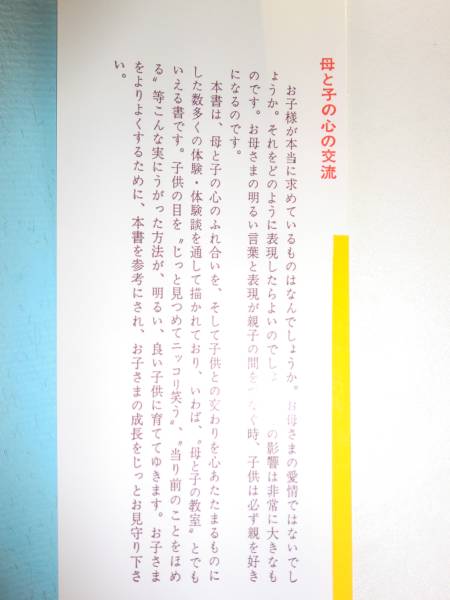 母と子の心の交流
お子様が本当に求めているものはなんでしょうか。お母さまの愛情ではないでし
ょうか。それをどのように表現したらよいのでしょ の影響は非常に大きなも
のです。お母さまの明るい言葉と表現が親子の間を なぐ時、子供は必ず親を好き
になるのです。
本書は、母と子の心のふれ合いを、そして子供との交わりを心あたたまるものに
した数多くの体験・体験談を通して描かれており、いわば、〝母と子の教室〟とでも
いえる書です。子供の目を〝じっと見つめてニッコリ笑う〟、〝当り前のことをほめ
る〟等こんな実にうがった方法が、明るい、良い子供に育ててゆきます。お子さま
をよりよくするために、本書を参考にされ、お子さまの成長をじっとお見守り下さ
い。